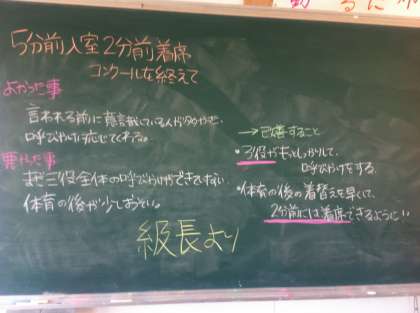 5分前入室2分前着席
コンクールを終えて
よかった事
言われる前に意識している人が
呼びかけに応じてくれる。
悪かった事
まだ三役全体の呼びかけができていない
体育の後が少しおそい。
→改善すること
・3役がもっとしっかりして、
呼びかけをする。
・体育の後の着替えを早くして、
2分前には着席できるように!!
級長より